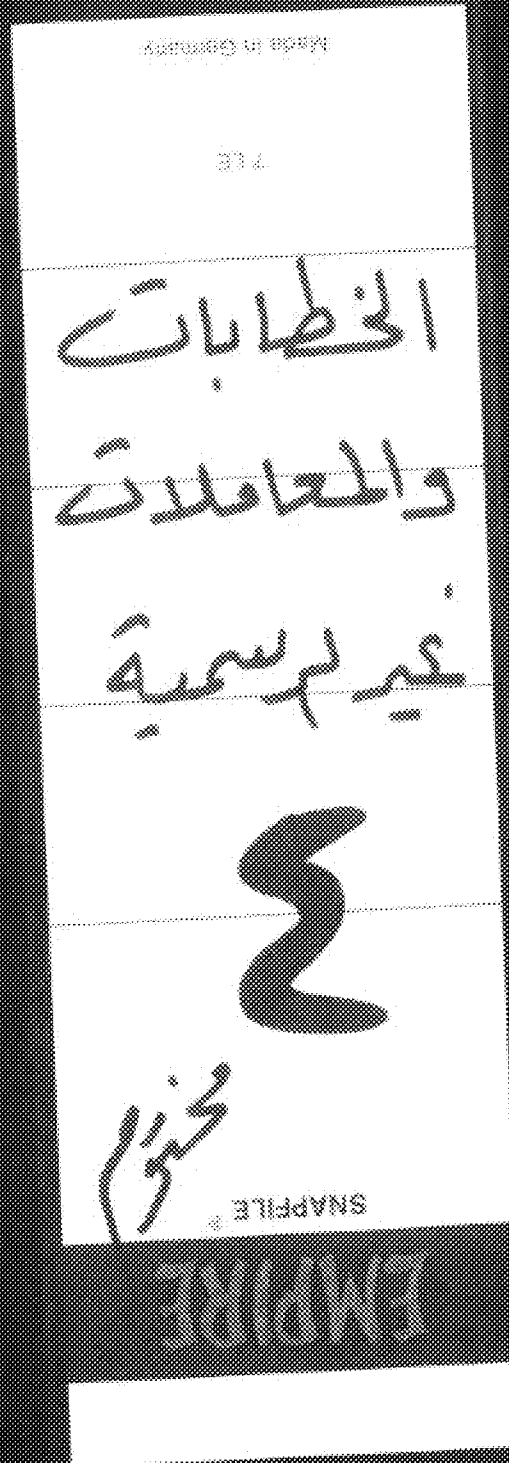 Made in Germany
الخطابات
والمعاملات
غير لرسمية
٤
SNAPFILE
EMPIRE